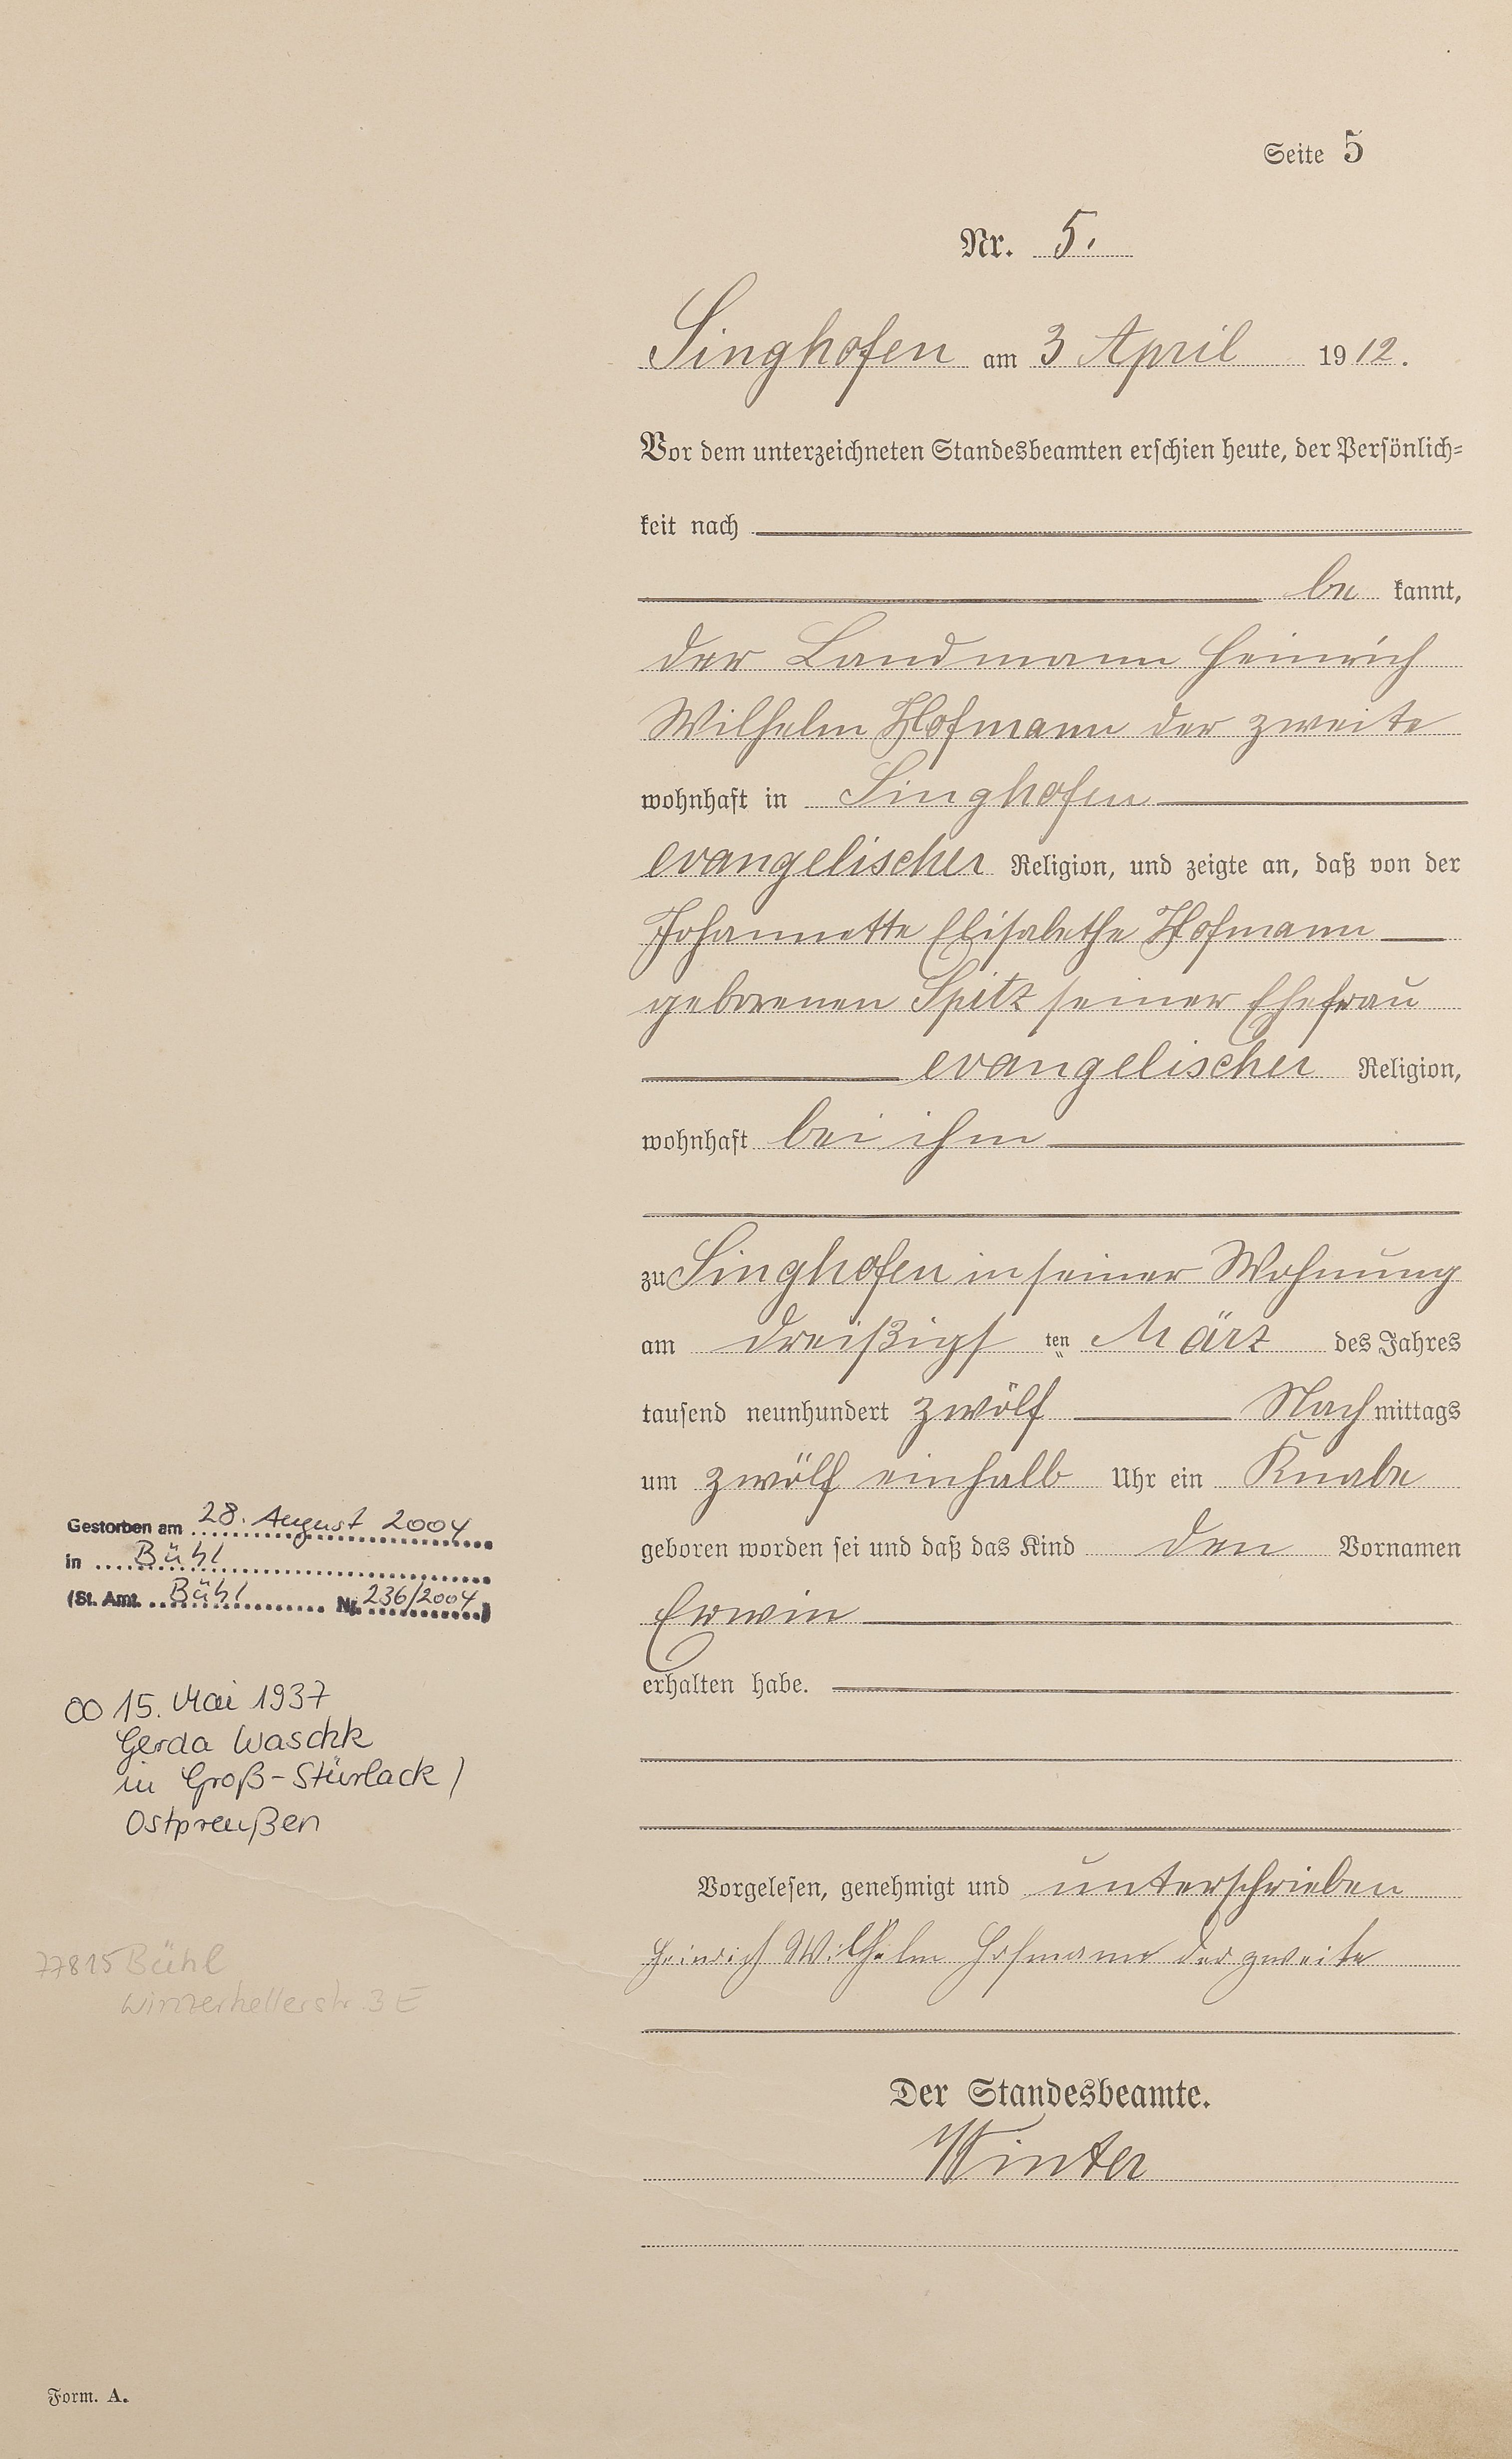 Seite 5
Nr. 5.
Singhofen am 3 April 1912.
Vor dem unterzeichneten Standesbeamten erschien heute, der Persönlich=
keit nach
be kannt,
der Landmann Heinrich
Wilhelm Hofmann der zweite
wohnhaft in Singhofen
evangelischer Religion, und zeigte an, daß von der
Johannette Elisabethe Hofmann
geborenen Spitz seiner Ehefrau
evangelischer Religion,
wohnhaft bei ihm
zu Singhofen in seiner Wohnung
am dreißigs ten März des Jahres
tausend neunhundert zwölf Nach mittags
um zwölf einhalb Uhr ein Knabe
geboren worden sei und daß das Kind den Vornamen
Erwin
erhalten habe.
Vorgelesen, genehmigt und unterschrieben
Heinrich Wilhelm Hofmann der zweite
Der Standesbeamte.
Winter
Gestorben am 28. August 2004
in Bühl
(St. Amt. Bühl Nr. 236/2004)
∞ 15. Mai 1937
Gerda Waschk
in Groß-Stürlack /
Ostpreußen
77815 Bühl
Winterhellerstr. 3E
Form. A.